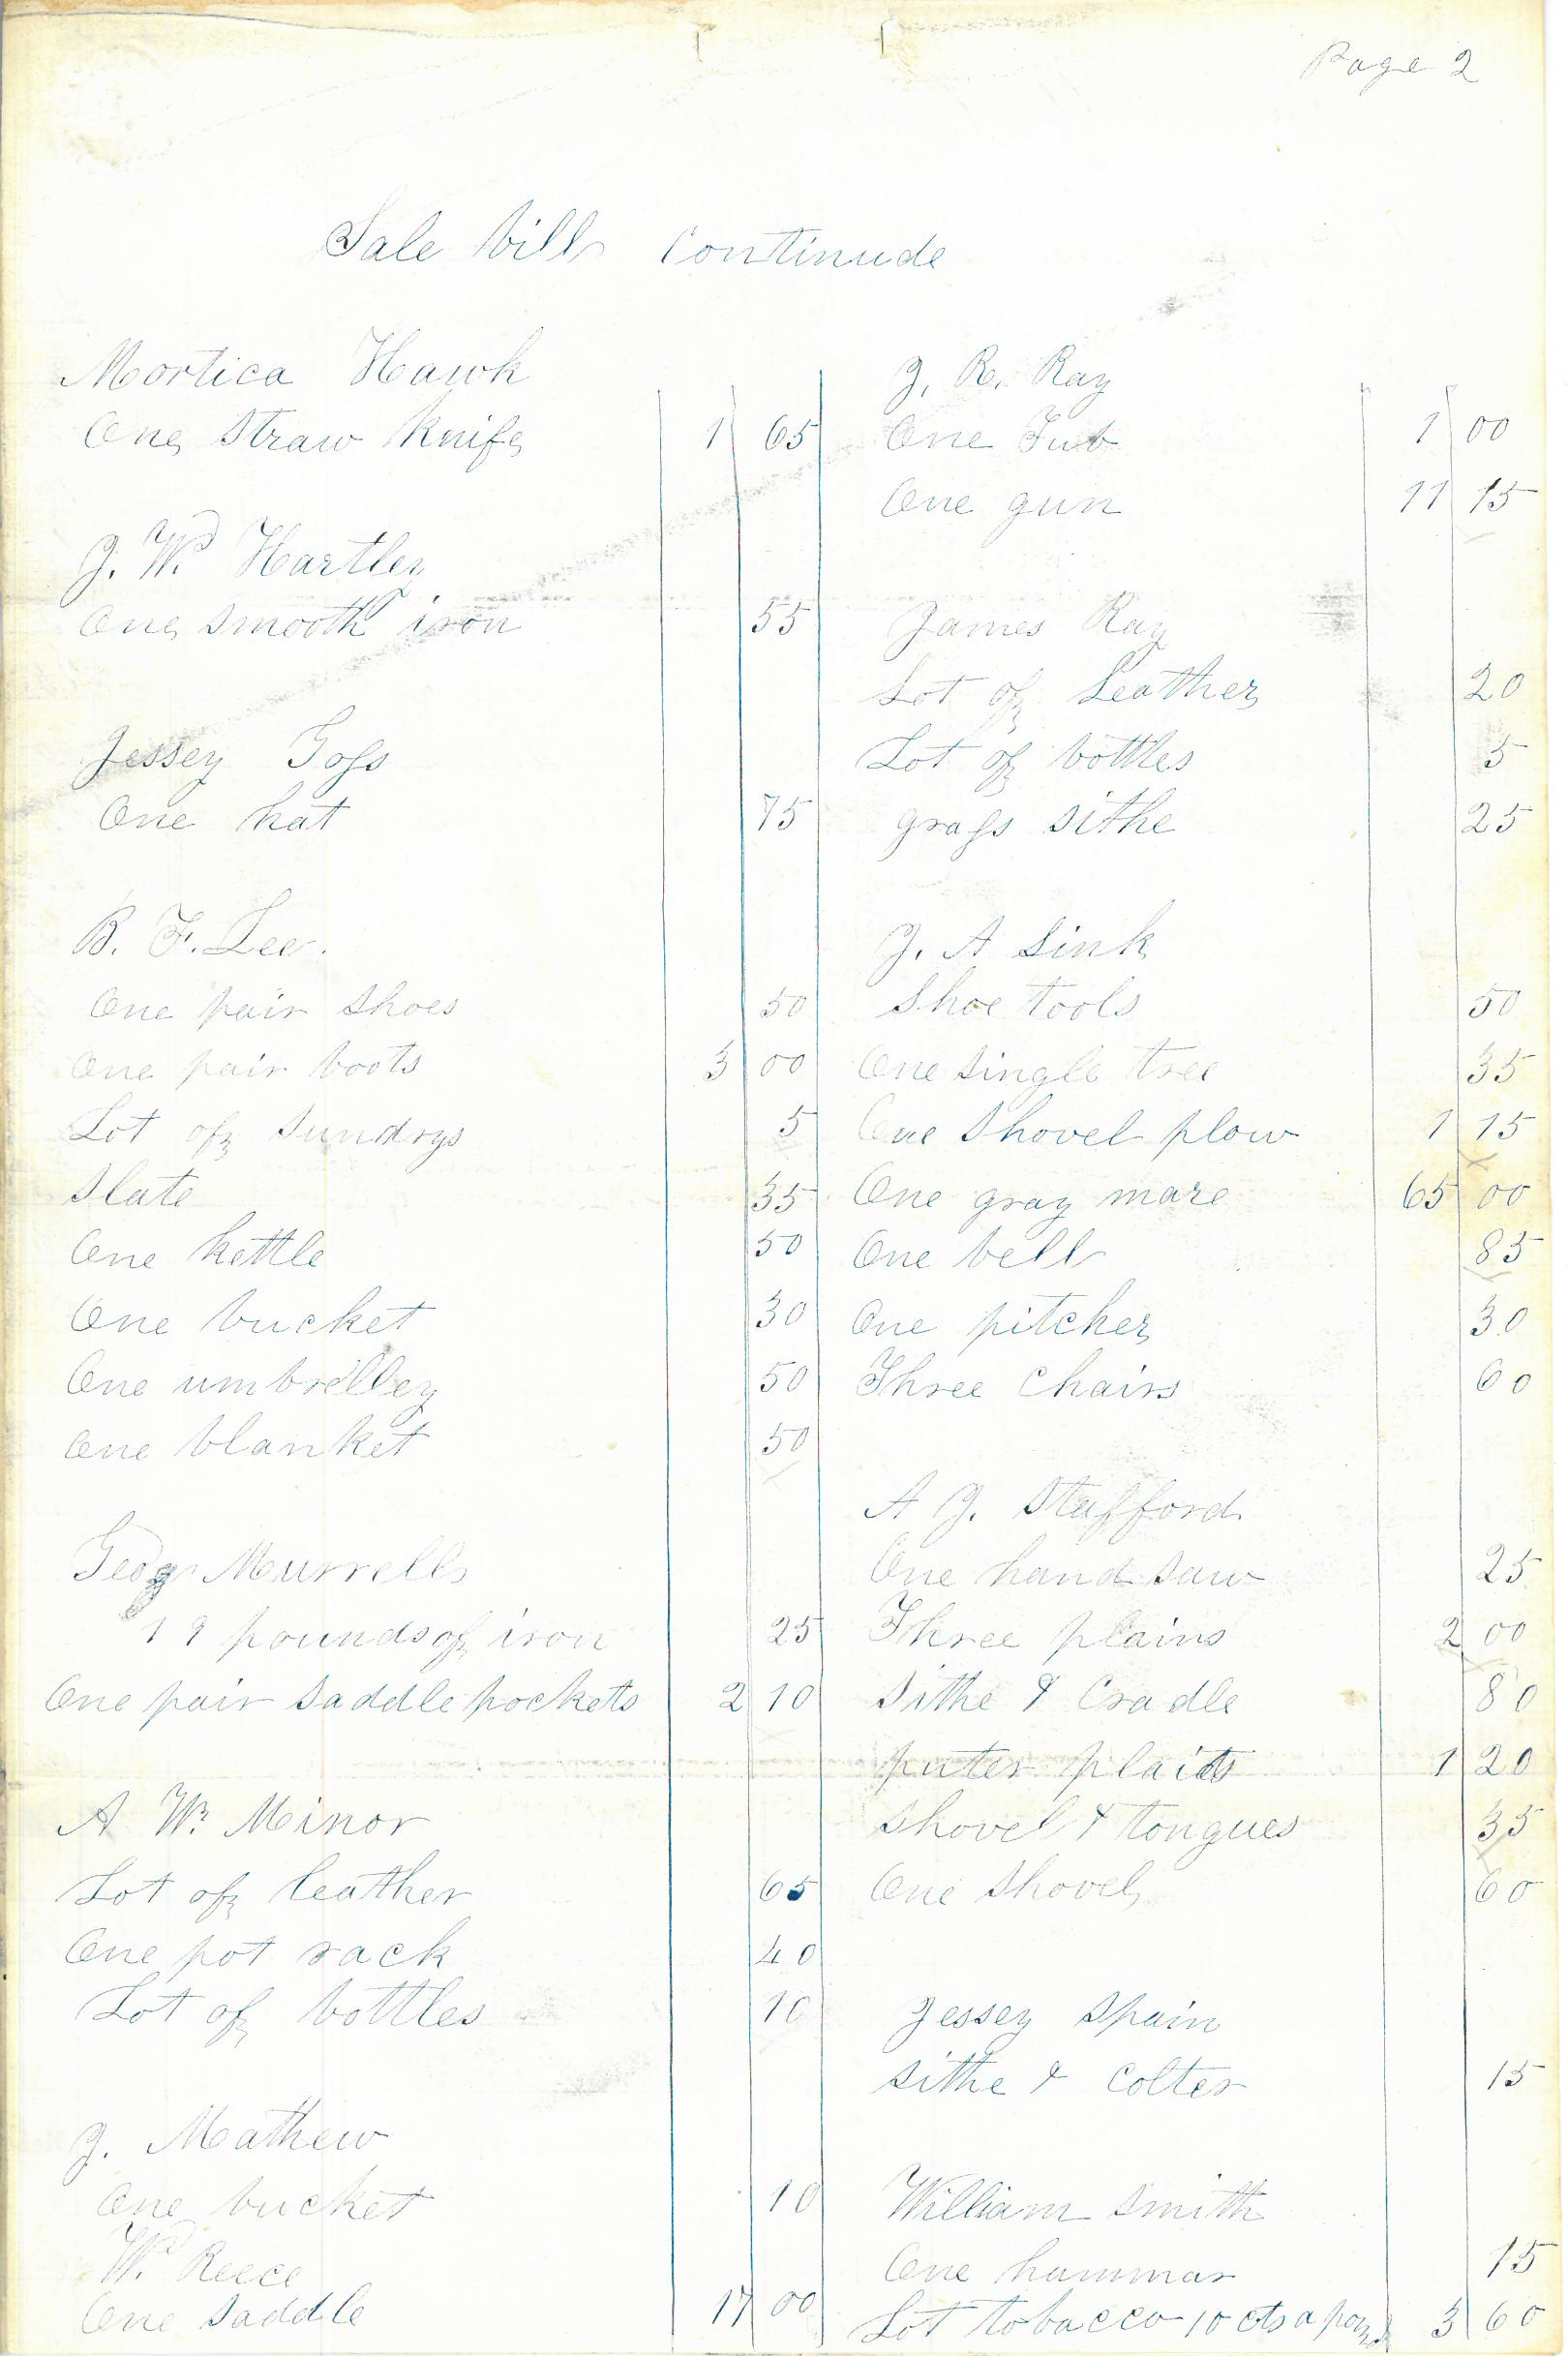 Page 2
Sale bill continude
Mortica Hawk
One straw knife 1 65
J. W. Hartley
One smooth iron 55
Jessey Goss
One hat 75
B. F. Lee.
One pair shoes 50
One pair boots 3 00
Lot of sundrys 5
Slate 35
One kettle 50
One bucket 30
One umbrelley 50
One blanket 50
Geog Murrells
19 pounds of iron 25
One pair saddle pockets 2 10
A W. Minor
Lot of leather 65
One pot rack 40
Lot of bottles 10
J. Mathew
One bucket 10
W. Reece
One saddle 17 00
J. R. Ray
One Tub 1 00
One gun 11 15
James Ray
Lot of Leather 20
Lot of bottles 5
grass sithe 25
J. A Sink
Shoe tools 50
One single tree 35
One shovel plow 1 15
One gray mare 65 00
One bell 85
One pitcher 30
Three chairs 60
A J. Stafford
One hand saw 25
Three plains 2 00
Sithe & Cradle 80
puter plaits 1 20
Shovel & tongues 35
One shovel 60
Jessey Spain
Sithe & Colter 15
William Smith
One hammar 15
Lot tobacco 10 cts a pound 3 60